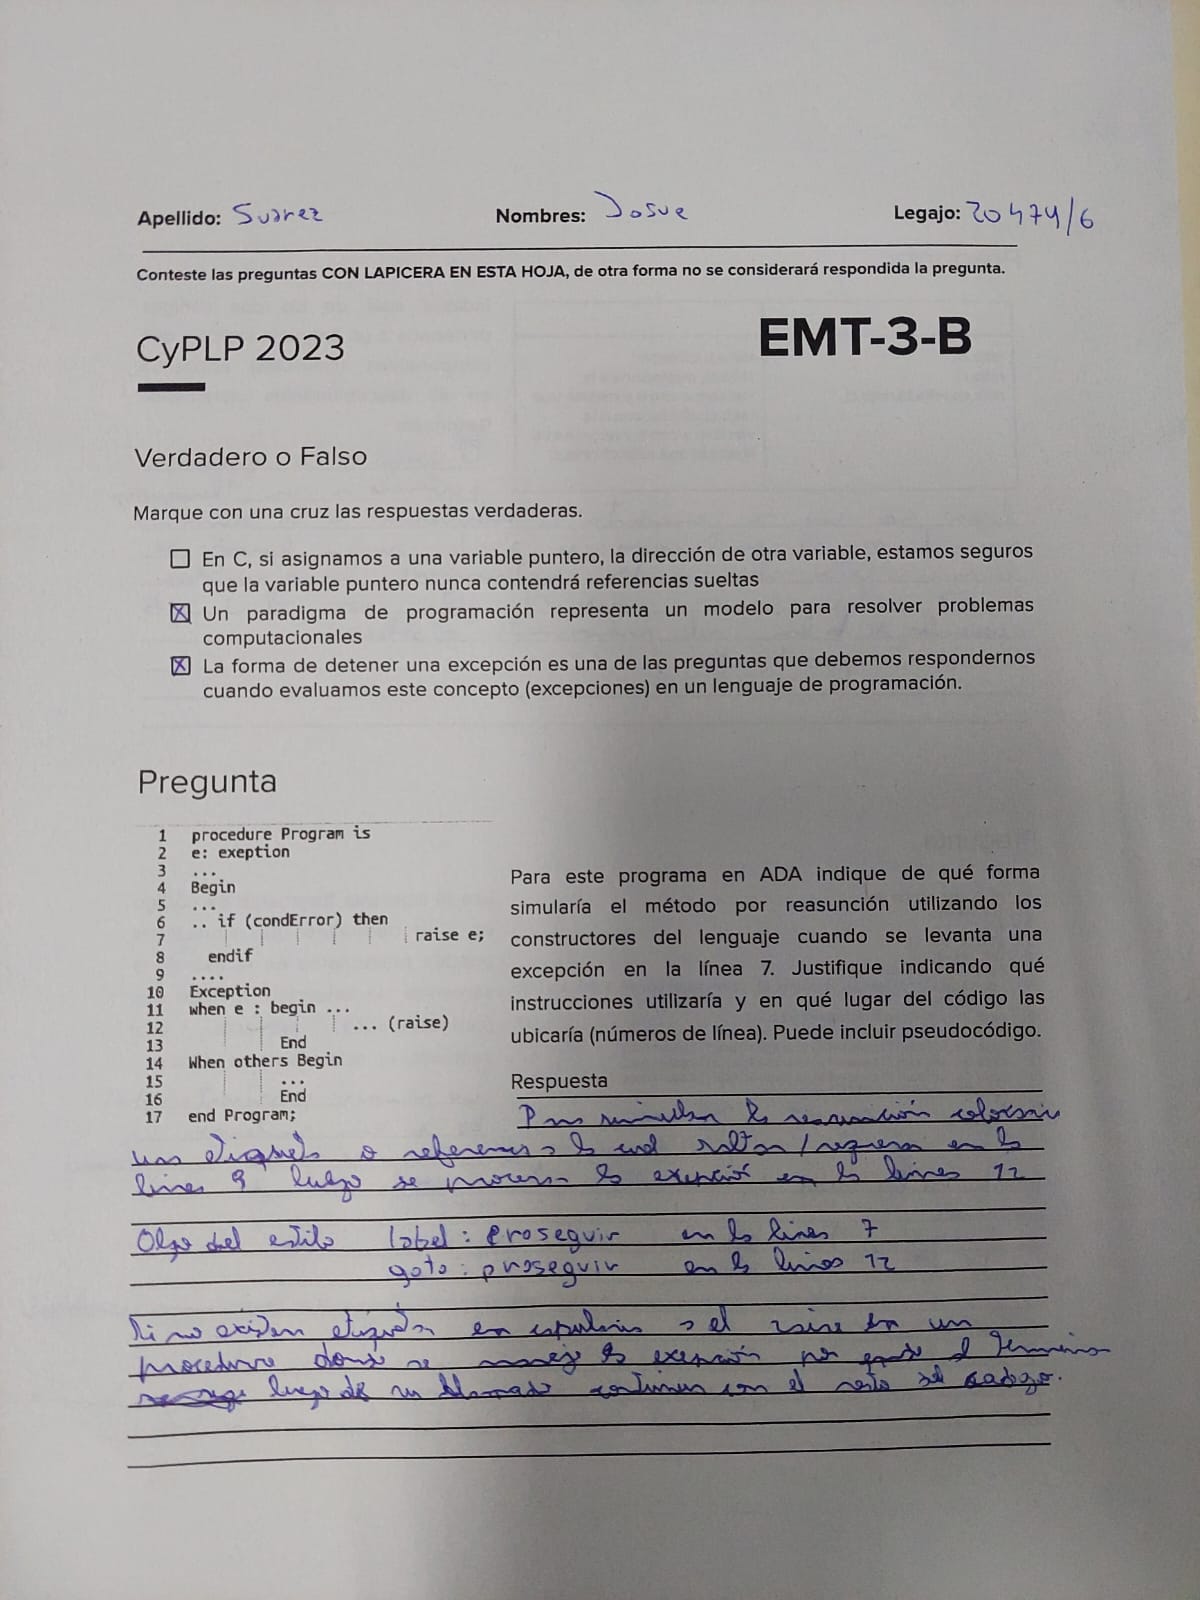 Apellido: Suarez Nombres: Josue Legajo: 20474/6
Conteste las preguntas CON LAPICERA EN ESTA HOJA, de otra forma no se considerará respondida la pregunta.
CyPLP 2023 EMT-3-B
Verdadero o Falso
Marque con una cruz las respuestas verdaderas.
En C, si asignamos a una variable puntero, la dirección de otra variable, estamos seguros
que la variable puntero nunca contendrá referencias sueltas
X Un paradigma de programación representa un modelo para resolver problemas
computacionales
X La forma de detener una excepción es una de las preguntas que debemos respondernos
cuando evaluamos este concepto (excepciones) en un lenguaje de programación.
Pregunta
1 procedure Program is
2 e: exeption
3 ...
4 Begin
5 ...
6 .. if (condError) then
7 raise e;
8 endif
9 ....
10 Exception
11 when e : begin ...
12 ... (raise)
13 End
14 When others Begin
15 ...
16 End
17 end Program;
Para este programa en ADA indique de qué forma
simularía el método por reasunción utilizando los
constructores del lenguaje cuando se levanta una
excepción en la línea 7. Justifique indicando qué
instrucciones utilizaría y en qué lugar del código las
ubicaría (números de línea). Puede incluir pseudocódigo.
Respuesta
Para simular la reasunción colocaria
una etiqueta o referencia a la cual saltar/regresar en la
linea 9 luego se procesa la exepción en la linea 12
Algo del estilo label: proseguir en la linea 7
goto: proseguir en la linea 12
Si no existen etiquetas en a el raise en un
procedure donde se maneja la exepción al terminar
luego de su llamado continua con el resto del codigo.